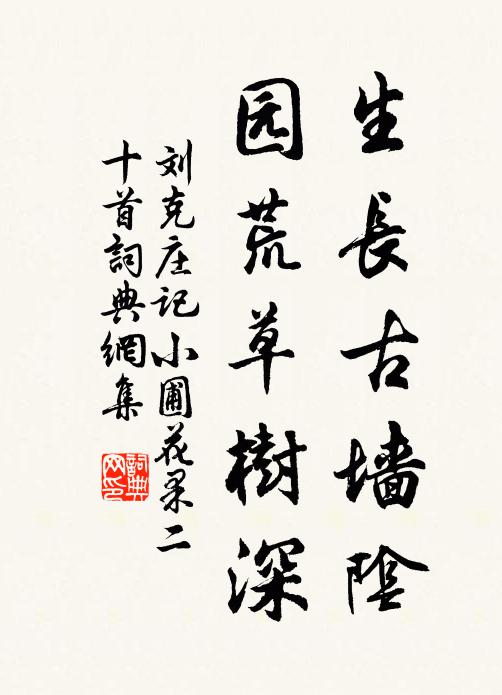 生長古墙陰
园荒草樹深
刘克庄记小圃花果二
十首詞典網集
詞典
网印